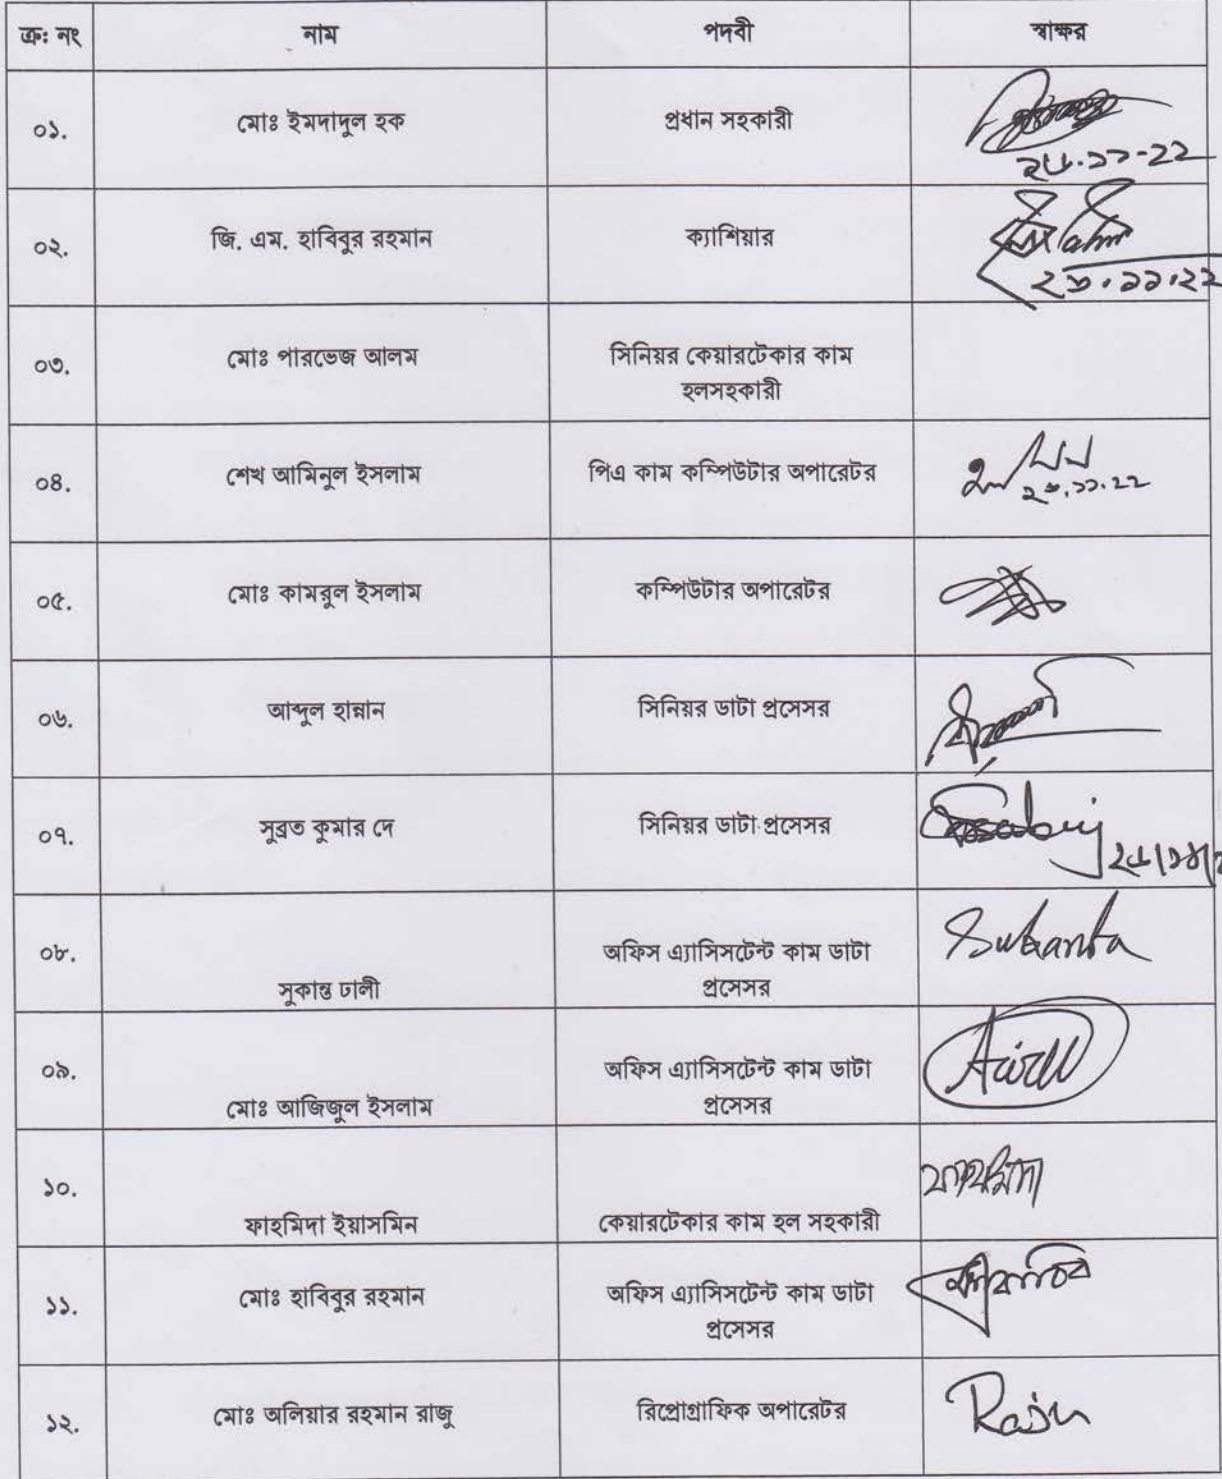 ক্র: নং নাম পদবী স্বাক্ষর
০১. মোঃ ইমদাদুল হক প্রধান সহকারী
২৮.১১-২২
০২. জি. এম. হাবিবুর রহমান ক্যাশিয়ার
২৮.১১.২২
০৩. মোঃ পারভেজ আলম সিনিয়র কেয়ারটেকার কাম
হলসহকারী
০৪. শেখ আমিনুল ইসলাম পিএ কাম কম্পিউটার অপারেটর
২৮.১১.২২
০৫. মোঃ কামরুল ইসলাম কম্পিউটার অপারেটর
০৬. আব্দুল হান্নান সিনিয়র ডাটা প্রসেসর
০৭. সুব্রত কুমার দে সিনিয়র ডাটা প্রসেসর
০৮. অফিস এ্যাসিসটেন্ট কাম ডাটা Sukanta
সুকান্ত ঢালী প্রসেসর
০৯. অফিস এ্যাসিসটেন্ট কাম ডাটা
মোঃ আজিজুল ইসলাম প্রসেসর
১০. ফাহমিদা
ফাহমিদা ইয়াসমিন কেয়ারটেকার কাম হল সহকারী
১১. মোঃ হাবিবুর রহমান অফিস এ্যাসিসটেন্ট কাম ডাটা
প্রসেসর
১২. মোঃ অলিয়ার রহমান রাজু রিপ্রোগ্রাফিক অপারেটর Raju